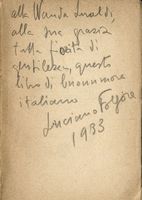 alla Wanda
alla sua grazia
tutta fiorita di
gentilezza, questo
libro di buonumore
italiano
Luciano Folgore
1933